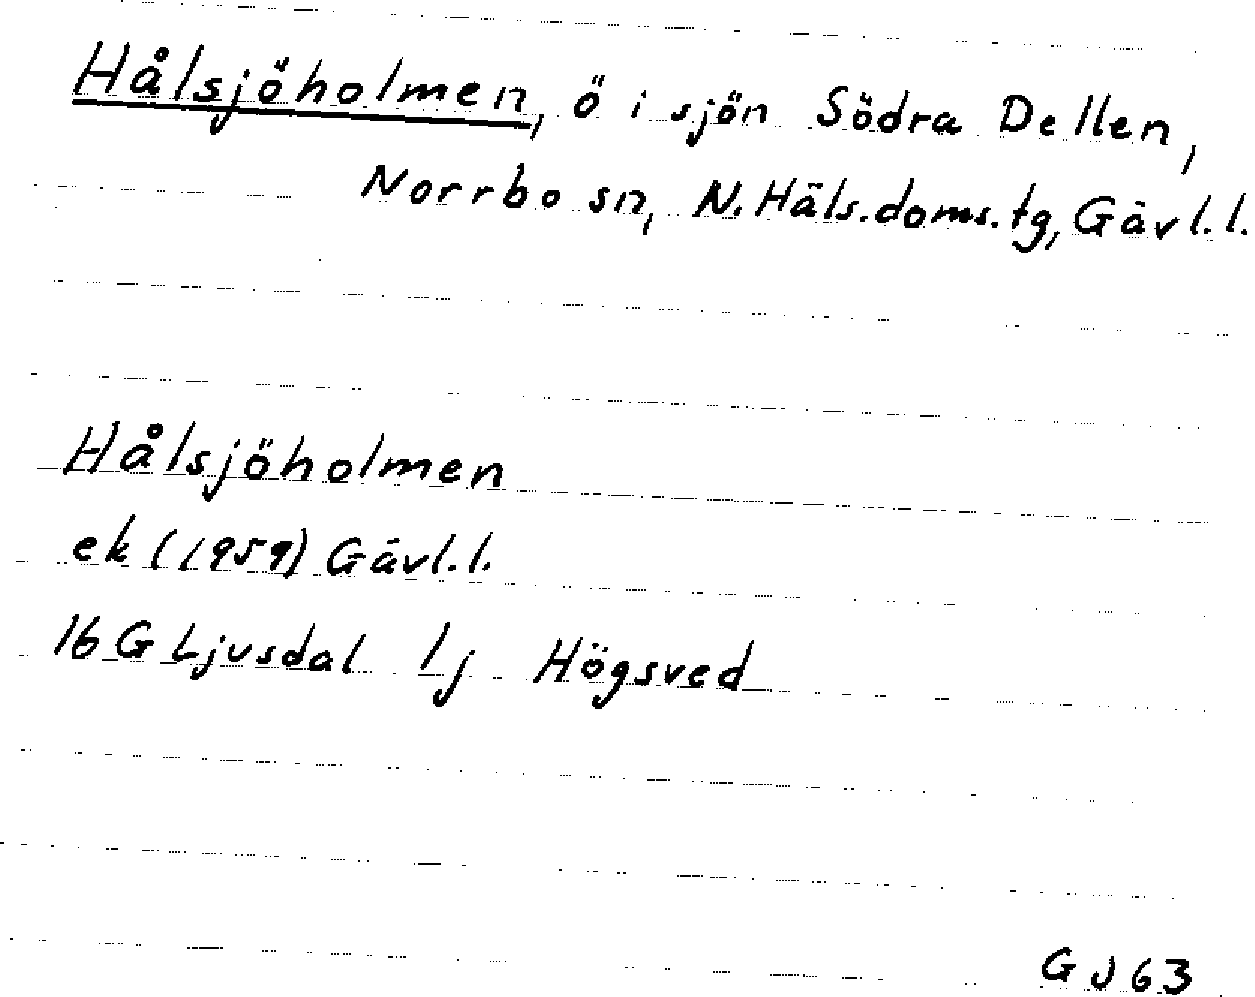 Hålsjöholmen, ö i sjön Södra Dellen,
Norrbo sn, N.Häls.doms.tg, Gävl.l.
Hålsjöholmen
ek (1959) Gävl.l.
16 G Ljusdal 1j Högsved
GJ 63